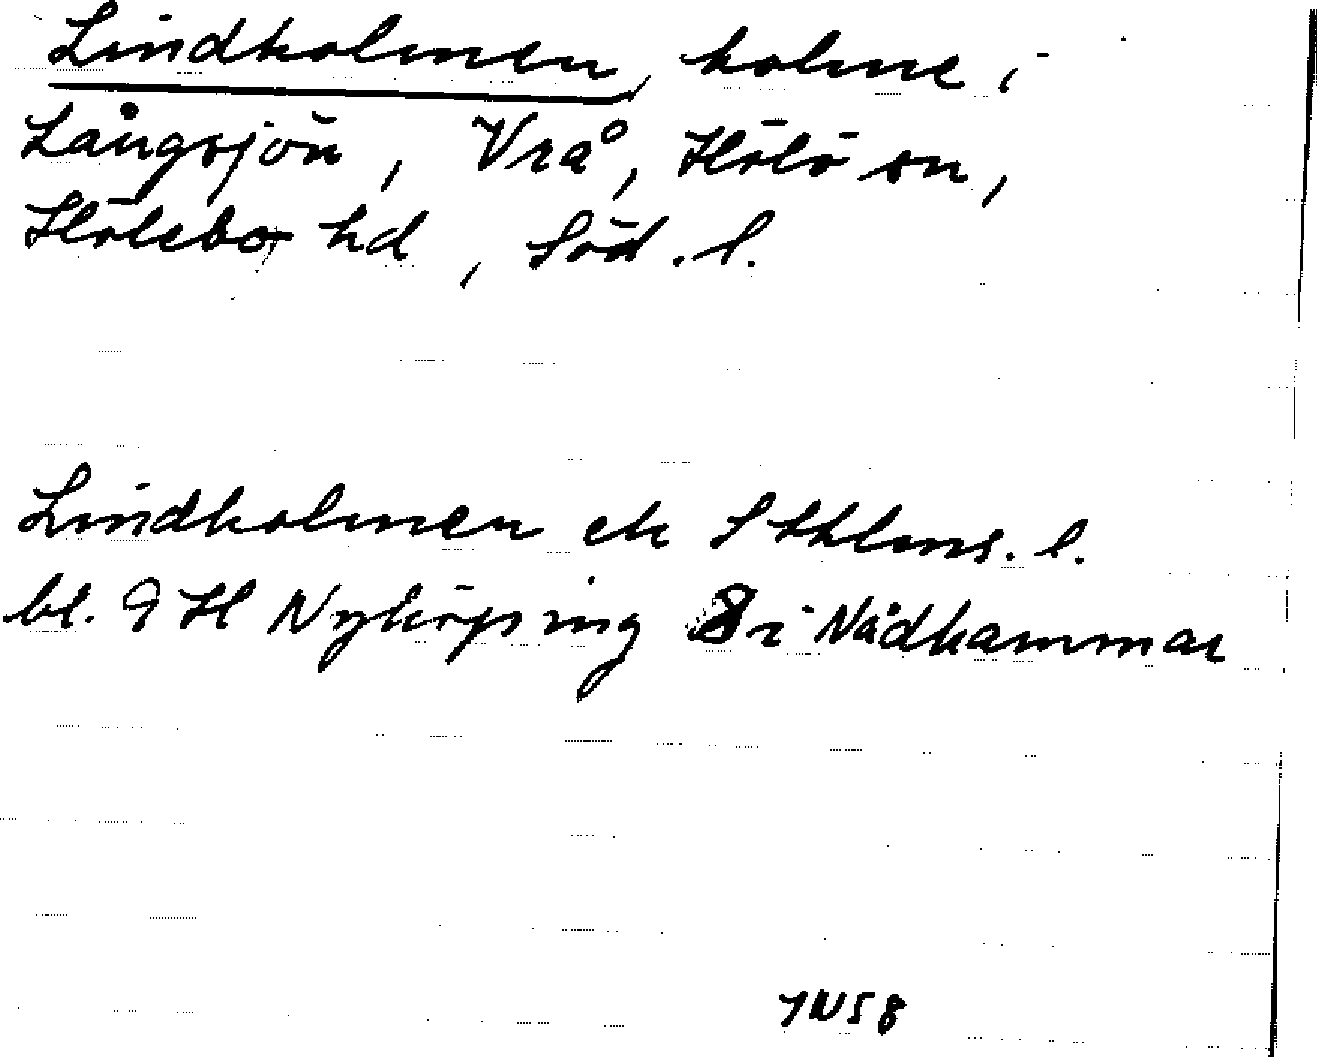 Lindholmen, holme i
Långsjön, Vrå, Hölö sn,
Hölebo hd, Söd. l.
Lindholmen ek Sthlms. l.
bl. 9 H Nyköping 8 i Nådhammar